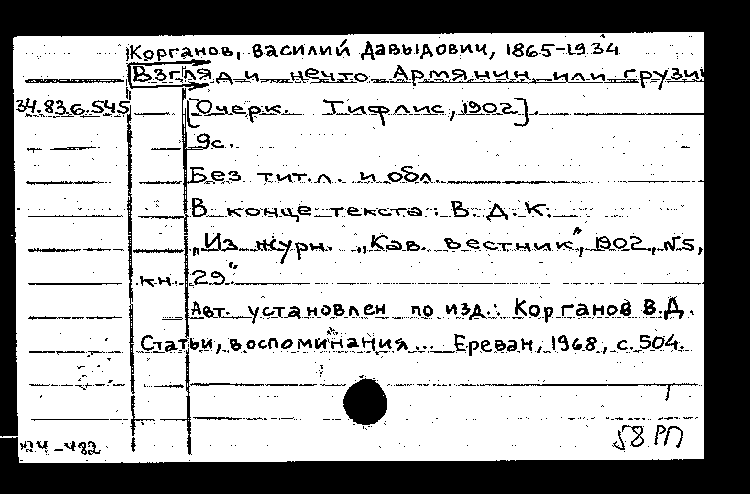 Корганов, Василий Давыдович, 1865-1934
Взгляд и нечто Армянин или грузин
34.83.6.545 [Очерк. Тифлис, 1902].
9с.
Без тит. л. и обл.
В конце текста: В. Д. К.
„Из журн. „Кав. вестник", 1902, №5,
кн. 29"
Авт. установлен по изд.: Корганов В.Д.
Статьи, воспоминания... Ереван, 1968, с. 504.
58 РП